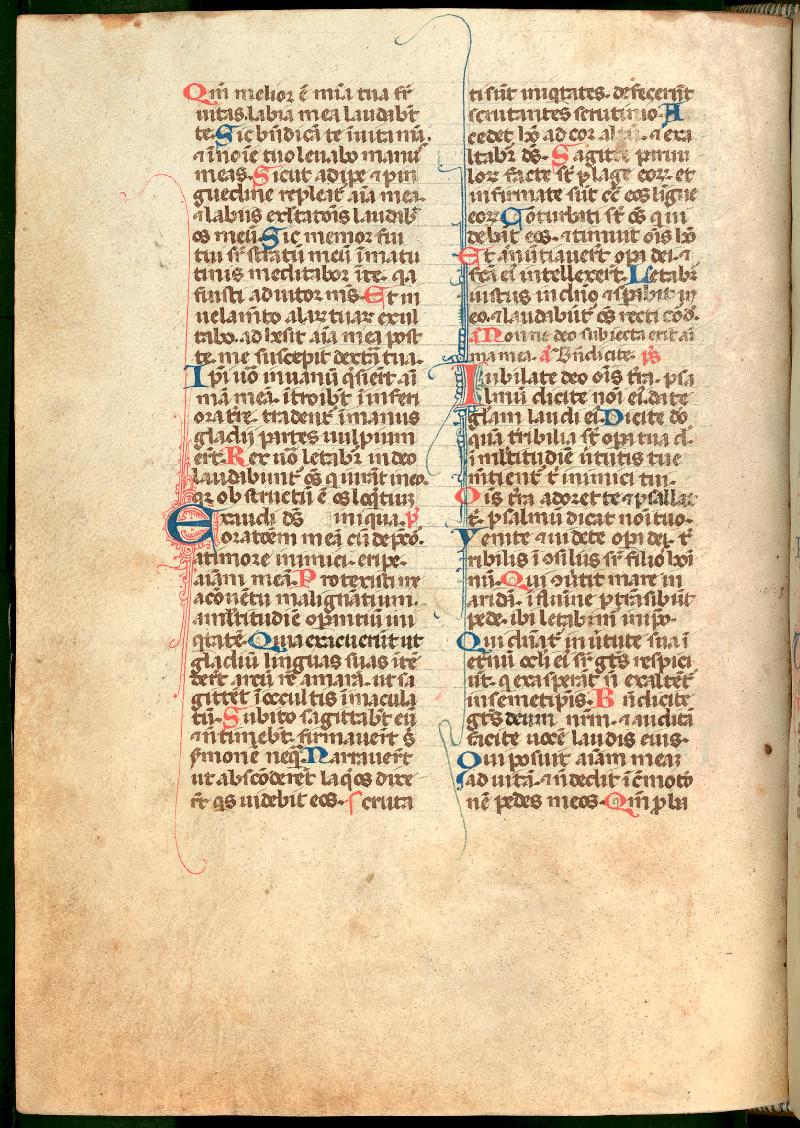 Qm̄ melior ē mīa tua sr̄
uitas. labia mea laudabt̄
te. Sic bn̄dicā te ī uita m̄.
⁊ ī noīe tuo leuabo manus
meas. Sicut adipe ⁊ pin
guedine repleat̄ aīa mea.
⁊ labiis exl̄tatōis laudab̄
os meū. Sic memor fui
tui sr̄ stratū meū ī matu
tinis meditabor ī te. qa
fuisti adiutor ms̄. Et in
uelamto alaꝝ tuaꝝ exul
tabo. adhesit aīa mea post
te. me suscepit dextā tua.
Ipi uō in uanū q̄sieꝛt̄ aī
mam meā. ītroibt̄ ī inferi
ora tr̄e. tradent̄ ī manus
gladii partes uulpium
ert̄. Rex uō letabr̄ in deo
laudabunt̄ os̄ q̄ iurāt in eo.
qꝛ obstructū ē os loq̄tiuꝫ
Exaudi ds̄ iniqua. p̄
orat̄oem meā cū dep̄cor̄.
a timore inimici. eripe.
aīam meā. Protexisti me
a cōuētu malignātium.
a ml̄titudīe opantiū ini
qtatē. Quia exacuerūt ut
gladiū linguas suas ītē
dert̄ arcū rē amarā. ut sa
gittēt ī occultis īmacula
tū. Subito sagittabt̄ eū
⁊ n̄ timebt̄. firmauert̄ s̄
sermonē neq̄. Narrauert̄
ut abscōderēt laqos dixe
rt̄ qs uidebit eos. Scruta
ti sūt iniqtates. defecerūt
scrutantes scrutinio. A
ccedet hō ad cor altū. ⁊ exa
ltabr̄ ds̄. Sagitte paruu
loꝝ facte st̄ plage eoꝝ. et
infirmate sūt cō eos ligue
eoꝝ. Cōturbati st̄ oēs q ui
debāt eos. ⁊ timuit oīs hō
Et an̄utiauert̄ opa dei. ⁊
fc̄ā ei intellexert̄. Letabr̄
iustus in dn̄o ⁊ spabit in
eo. ⁊ laudabūt̄ os̄ recti cord̄.
a Nonne deo subiecta erit aī
ma mea. a Bn̄dicite. ps̄
Iubilate deo oīs tr̄a. psa
lmū dicite noī ei. date
glām laudi ei. Dicite dō
quā tribilia st̄ opa tua d̄.
ī ml̄titudīe ūtutis tue
mītient̄ t̄ inimici tui.
Oīs tr̄a adoret te ⁊ psallat
t̄. psalmū dicat noī tuo.
Venite ⁊ uidete opa dei. t̄
ribilis ī ɔsiliis sr̄ filios hoī
nū. Qui ɔūtit mare in
aridā. ī flumīe p̄trāsibūt
pede. ibi letabim̄ in ip̄o.
Qui dn̄at̄ in ūtute sua ī
et̄nū ocli ei sr̄ gt̄s respici
ūt. q exasperāt n̄ exaltēt̄
in semetip̄is. Bn̄dicite
gt̄s deum nr̄m. ⁊ auditā
facite uocē laudis eius.
Qui posuit aīam meaꝫ
ad uitā. ⁊ n̄ dedit ī c̄moti
nē pedes meos. Qm̄ p̄ba